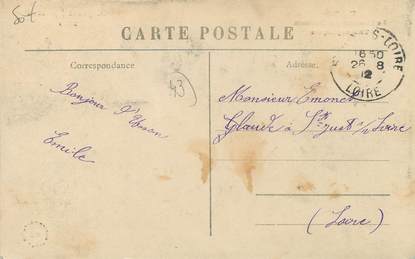 CARTE POSTALE
Correspondance
Adresse
S-LOIRE
16 50
26-8
12
LOIRE
43
Bonjour d'
Emile
Monsieur Emonet
Glaude à St Just s/ Loire
(Loire)